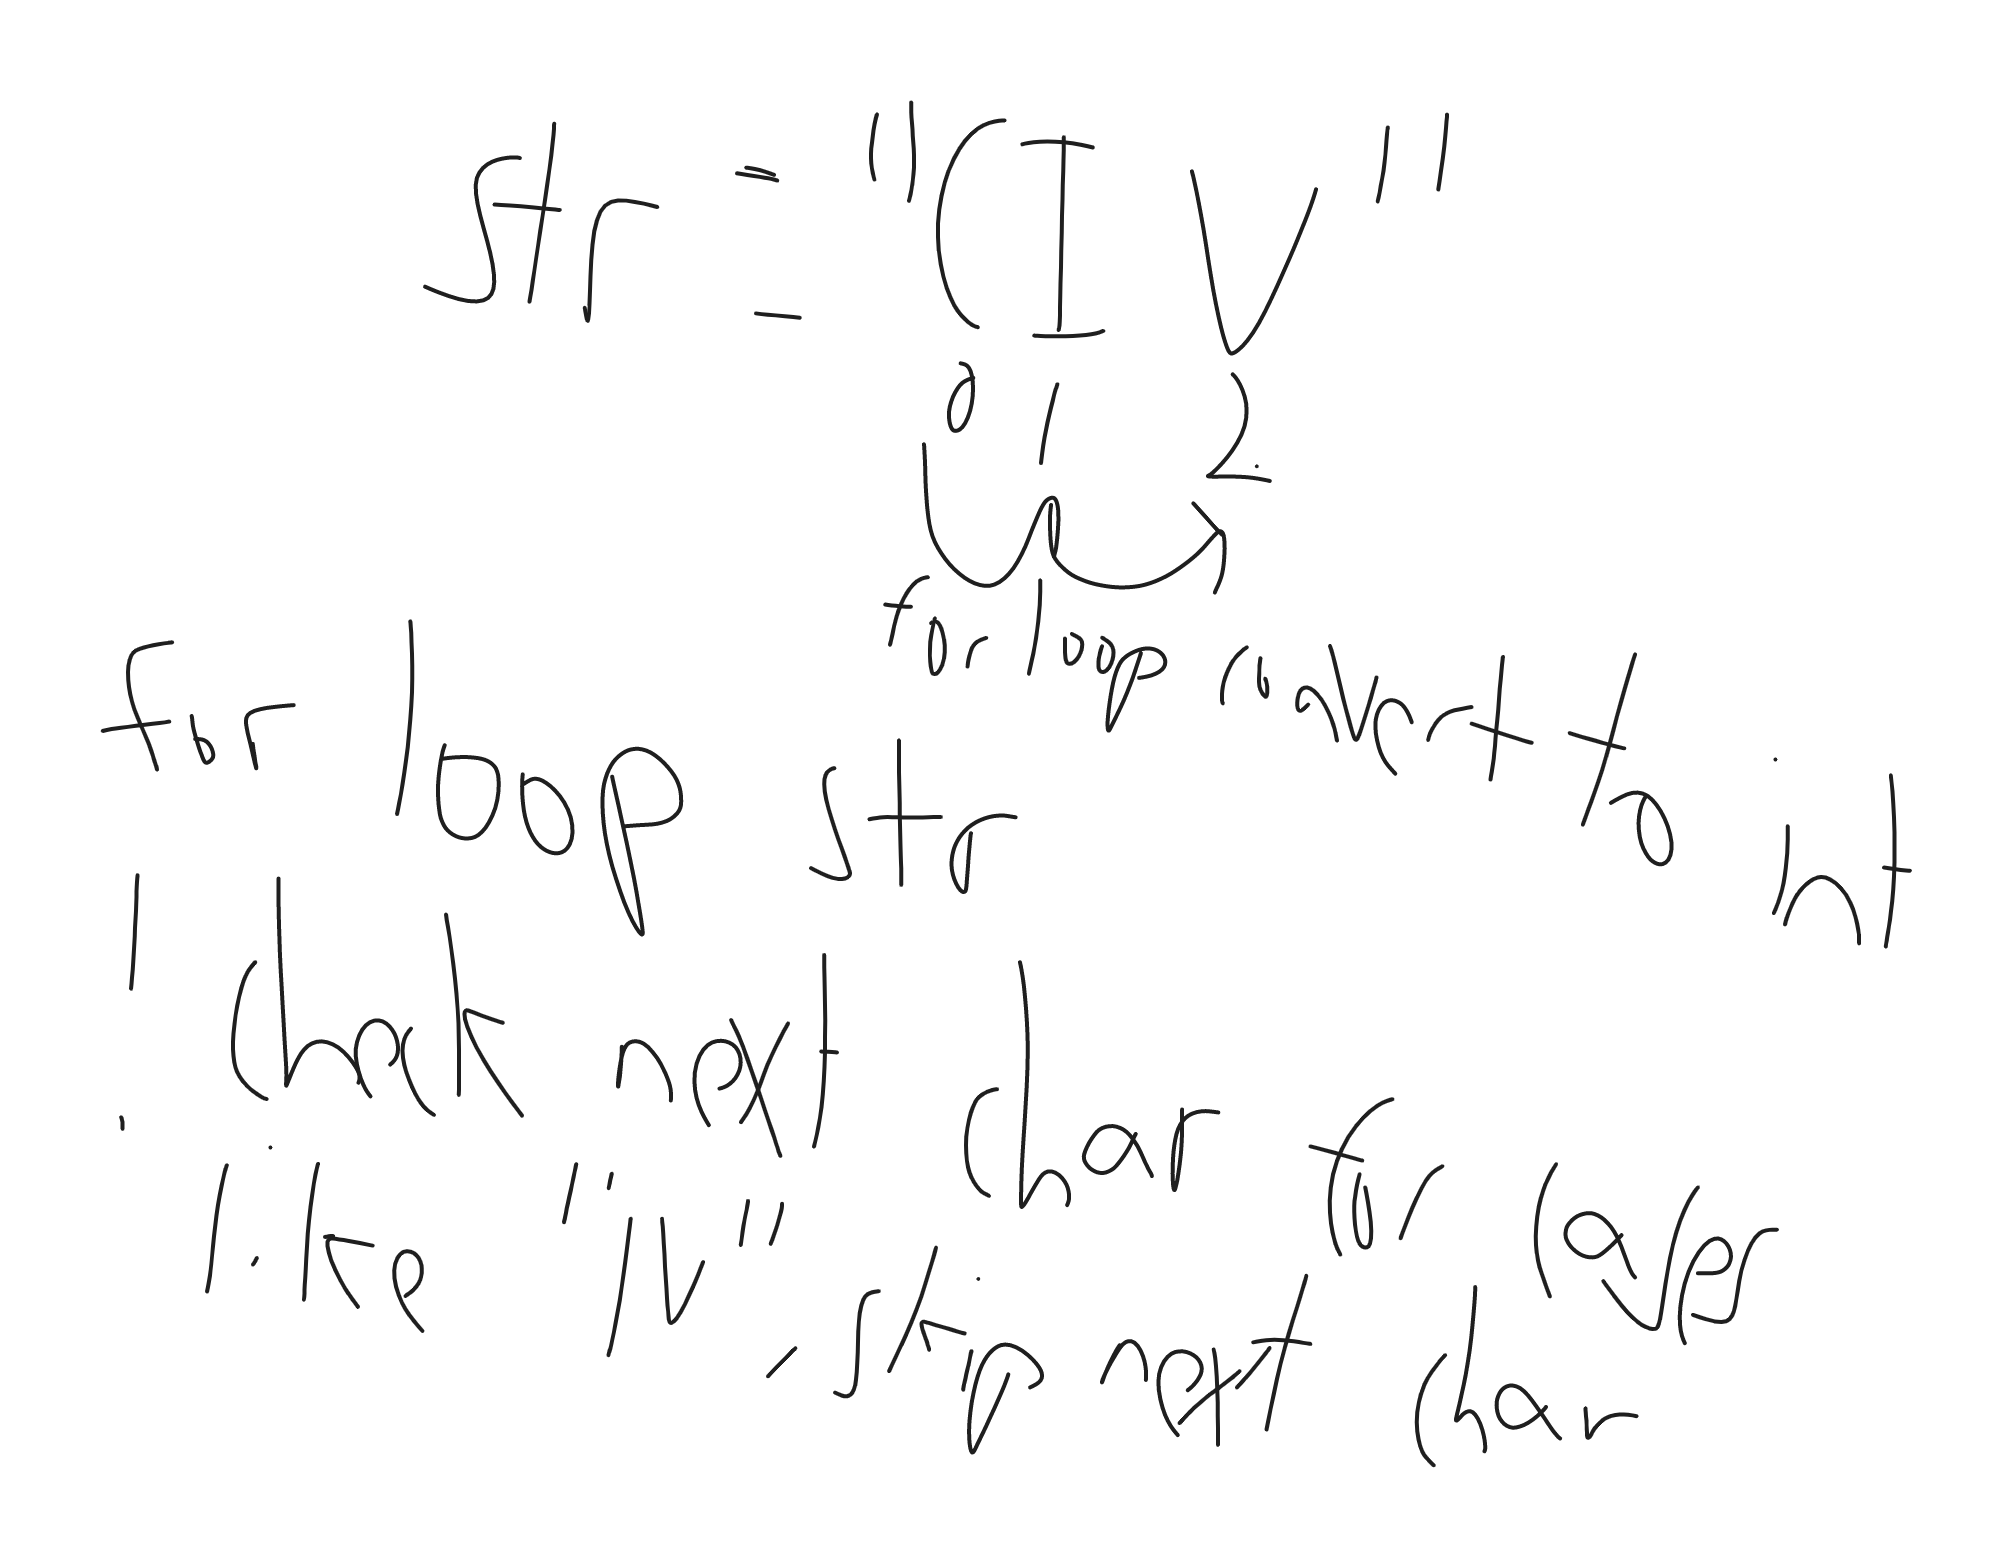 str = "CIV"
0 1 2
for loop convert to int
for loop str
! check next char for cases
like "IV", skip next char